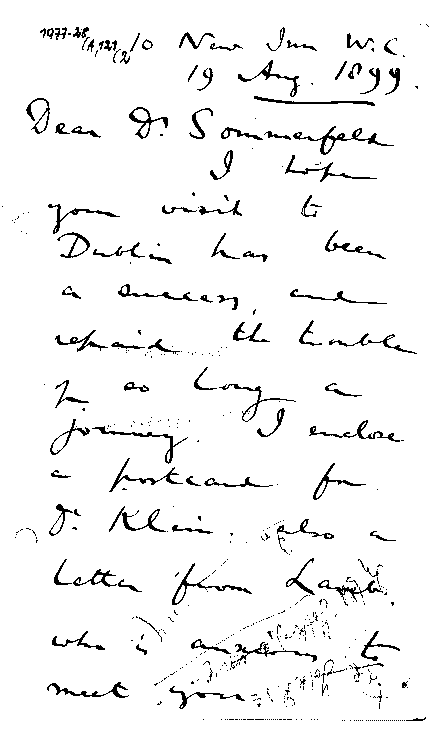 1977-28/A,121(2)
10 New Inn W.C.
19 Aug. 1899.
Dear Dr Sommerfeld
I hope
your visit to
Dublin has been
a success, and
repaid the trouble
of so long a
journey. I enclose
a postcard for
Dr Klein, also a
letter from Lamb,
who is anxious to
meet you.